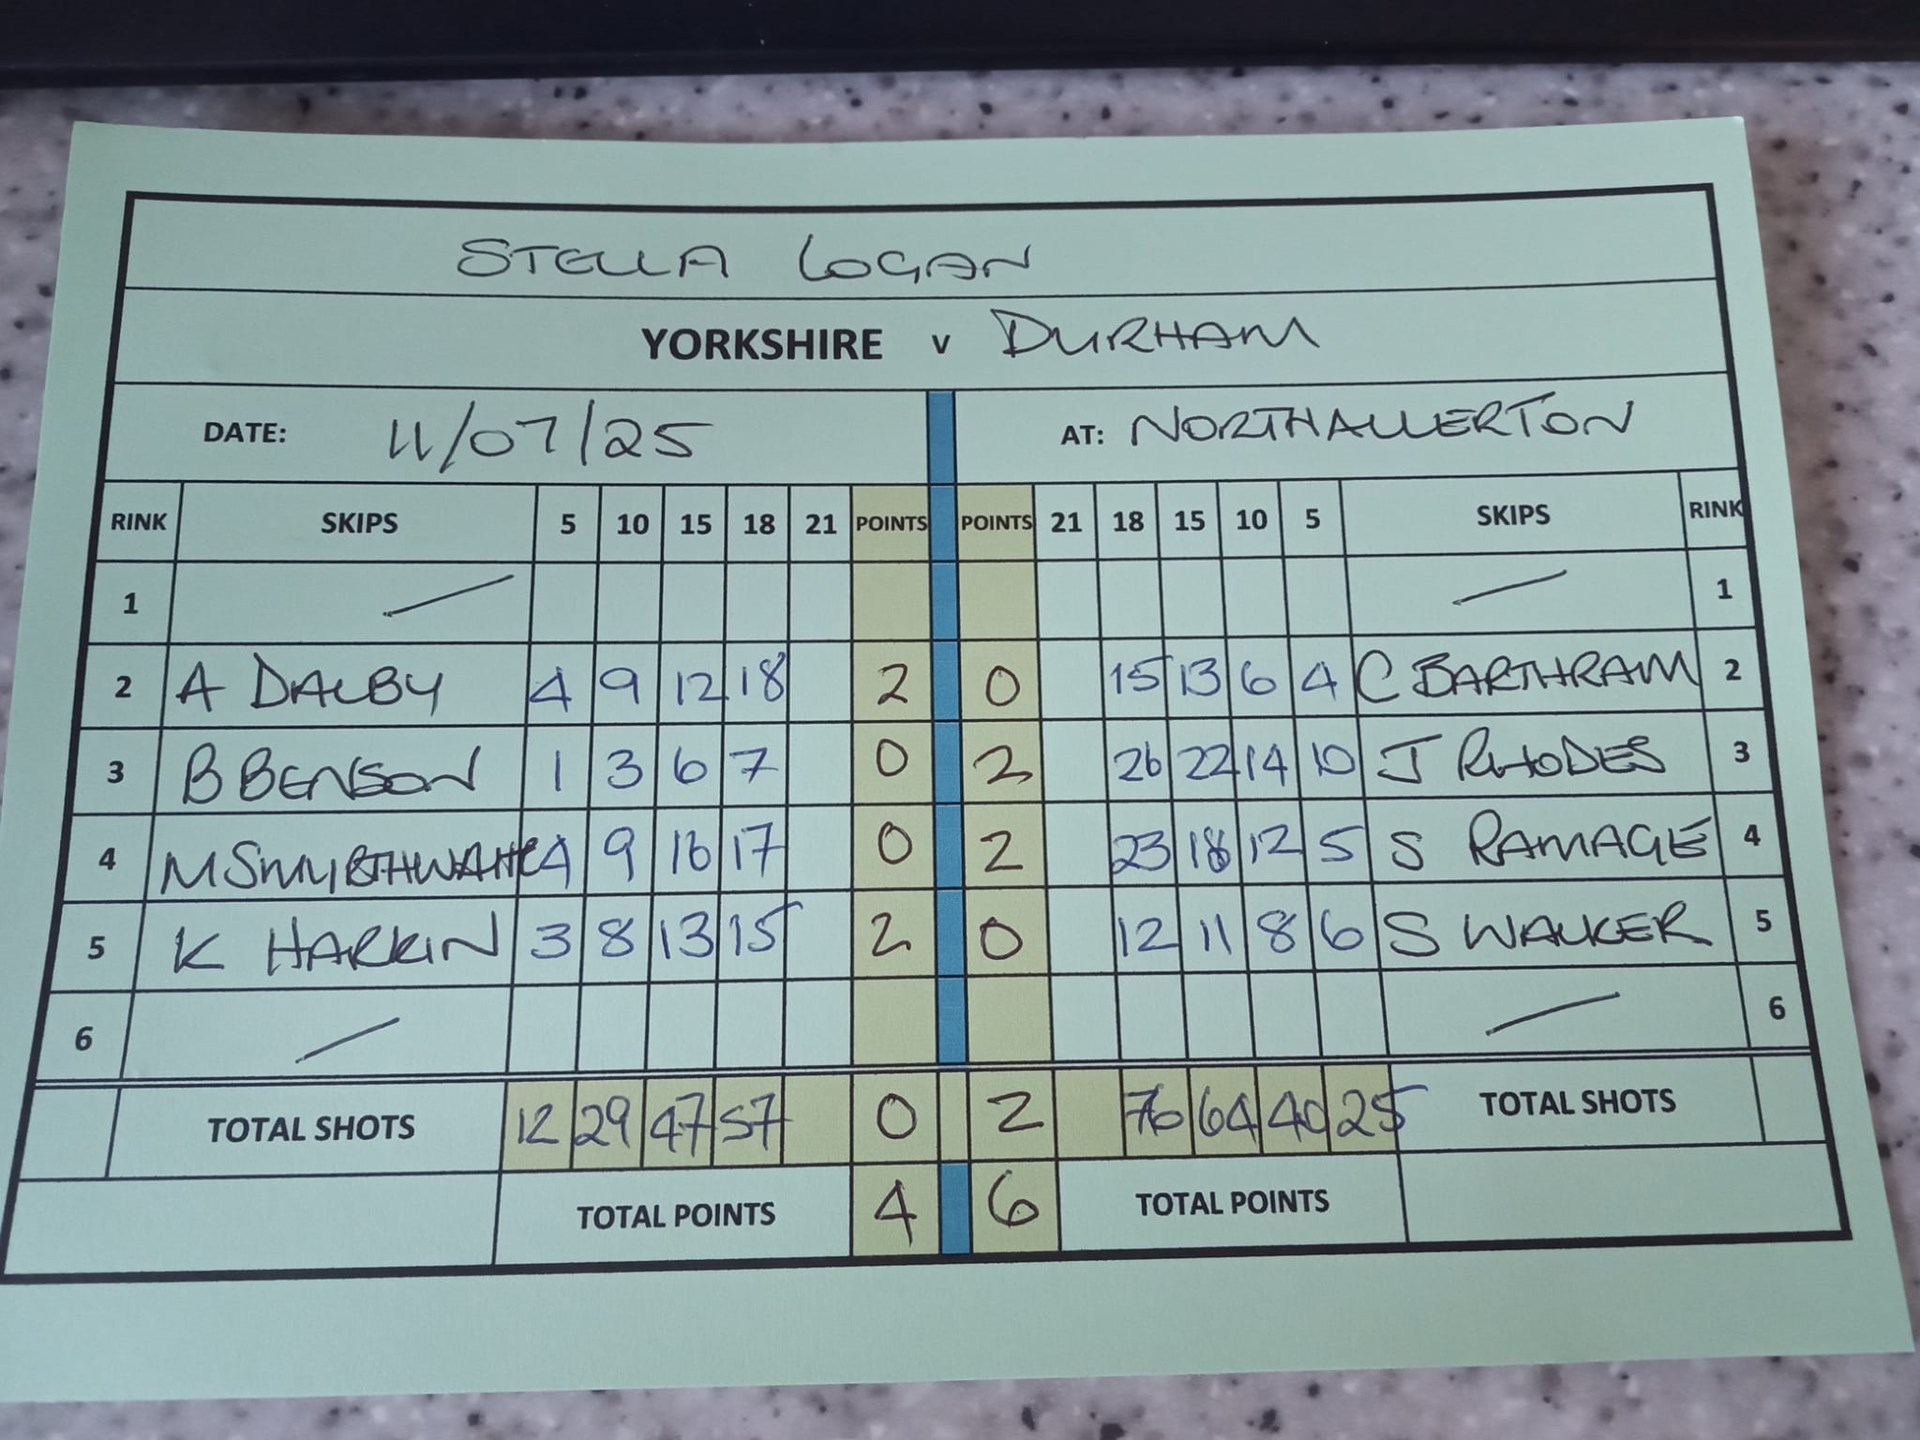 STELLA LOGAN
YORKSHIRE v DURHAM
DATE: 11/07/25 AT: NORTHALLERTON
RINK SKIPS 5 10 15 18 21 POINTS POINTS 21 18 15 10 5 SKIPS RINK
1 / / 1
2 A DALBY 4 9 12 18 2 0 15 13 6 4 C BARTHRAM 2
3 B BENSON 1 3 6 7 0 2 26 22 14 10 J RHODES 3
4 M 4 9 16 17 0 2 23 18 12 5 S RAMAGE 4
5 K HARKIN 3 8 13 15 2 0 12 11 8 6 S WALKER 5
6 / / 6
TOTAL SHOTS 12 29 47 57 0 2 76 64 40 25 TOTAL SHOTS
TOTAL POINTS 4 6 TOTAL POINTS